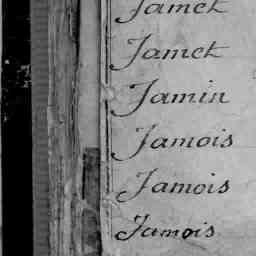 Jamet
Jamet
Jamin
Jamois
Jamois
Jamois